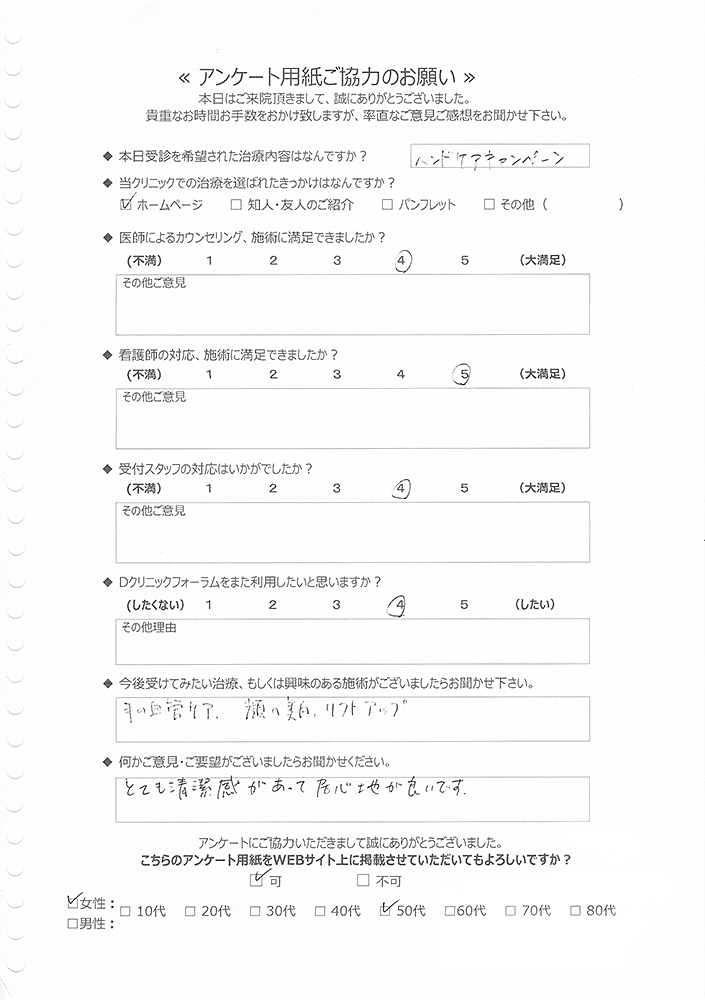 ≪ アンケート用紙ご協力のお願い ≫
本日はご来院頂きまして、誠にありがとうございました。
貴重なお時間お手数をおかけ致しますが、率直なご意見ご感想をお聞かせ下さい。
◆ 本日受診を希望された治療内容はなんですか？ ハンドケアキャンペーン
◆ 当クリニックでの治療を選ばれたきっかけはなんですか？
☑ ホームページ □ 知人・友人のご紹介 □ パンフレット □ その他（ ）
◆ 医師によるカウンセリング、施術に満足できましたか？
(不満) 1 2 3 4 5 (大満足)
その他ご意見
◆ 看護師の対応、施術に満足できましたか？
(不満) 1 2 3 4 5 (大満足)
その他ご意見
◆ 受付スタッフの対応はいかがでしたか？
(不満) 1 2 3 4 5 (大満足)
その他ご意見
◆ Dクリニックフォーラムをまた利用したいと思いますか？
(したくない) 1 2 3 4 5 (したい)
その他理由
◆ 今後受けてみたい治療、もしくは興味のある施術がございましたらお聞かせ下さい。
手の血管ケア、 顔の美白、リフトアップ
◆ 何かご意見・ご要望がございましたらお聞かせください。
とても清潔感があって居心地が良いです。
アンケートにご協力いただきまして誠にありがとうございました。
こちらのアンケート用紙をWEBサイト上に掲載させていただいてもよろしいですか？
☑ 可 □ 不可
☑女性： □ 10代 □ 20代 □ 30代 □ 40代 ☑50代 □60代 □ 70代 □ 80代
□男性：